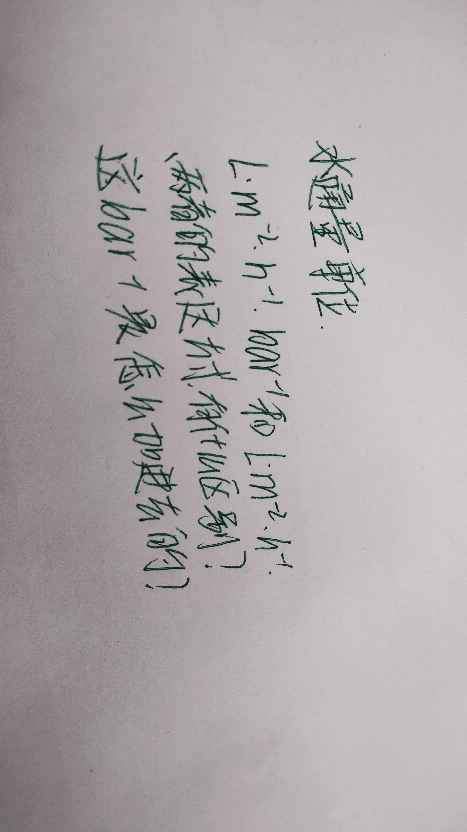 水通量单位.
L·m⁻²·h⁻¹·bar⁻¹和 L·m⁻²·h⁻¹.
两者的表达方式有什么区别?
这bar⁻¹是怎么加进去的?